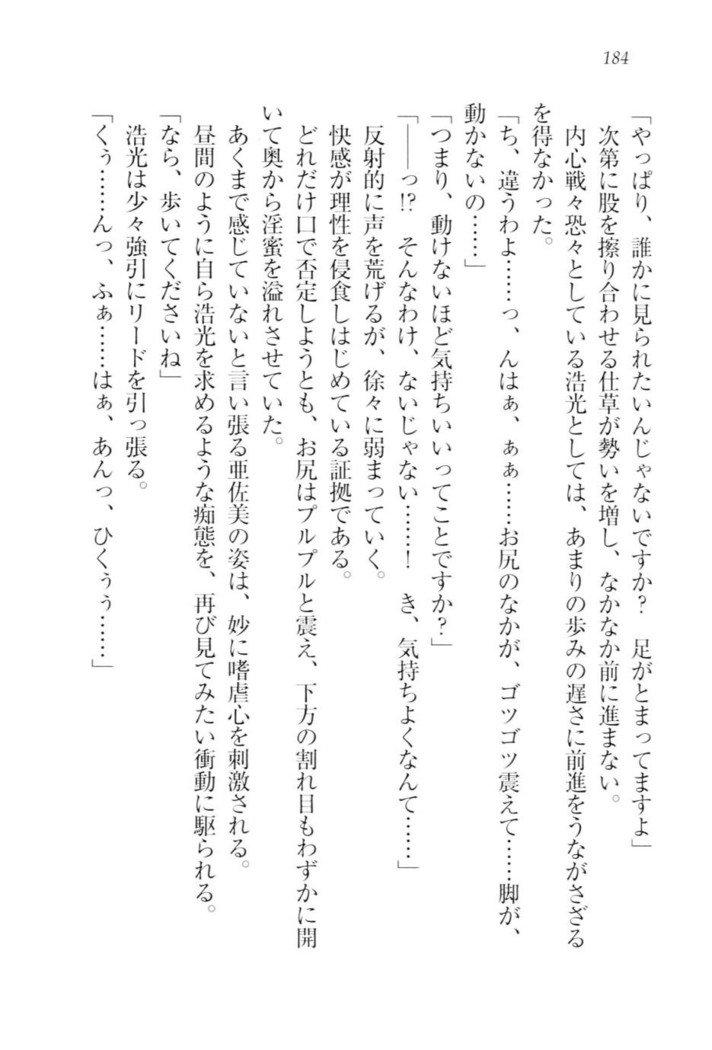 184
「やっぱり、誰かに見られたいんじゃないですか？　足がとまってますよ」
次第に股を擦り合わせる仕草が勢いを増し、なかなか前に進まない。
内心戦々恐々としている浩光としては、あまりの歩みの遅さに前進をうながさざる
を得なかった。
「ち、違うわよ……っ、んはぁ、ぁぁ……お尻のなかが、ゴツゴツ震えて……脚が、
動かないの……」
「つまり、動けないほど気持ちいいってことですか？」
「――っ!?　そんなわけ、ないじゃない……！　き、気持ちよくなんて……」
反射的に声を荒げるが、徐々に弱まっていく。
快感が理性を侵食しはじめている証拠である。
どれだけ口で否定しようとも、お尻はプルプルと震え、下方の割れ目もわずかに開
いて奥から淫蜜を溢れさせていた。
あくまで感じていないと言い張る亜佐美の姿は、妙に嗜虐心を刺激される。
昼間のように自ら浩光を求めるような痴態を、再び見てみたい衝動に駆られる。
「なら、歩いてくださいね」
浩光は少々強引にリードを引っ張る。
「くぅ……んっ、ふぁ……はぁ、あんっ、ひくぅぅ……」